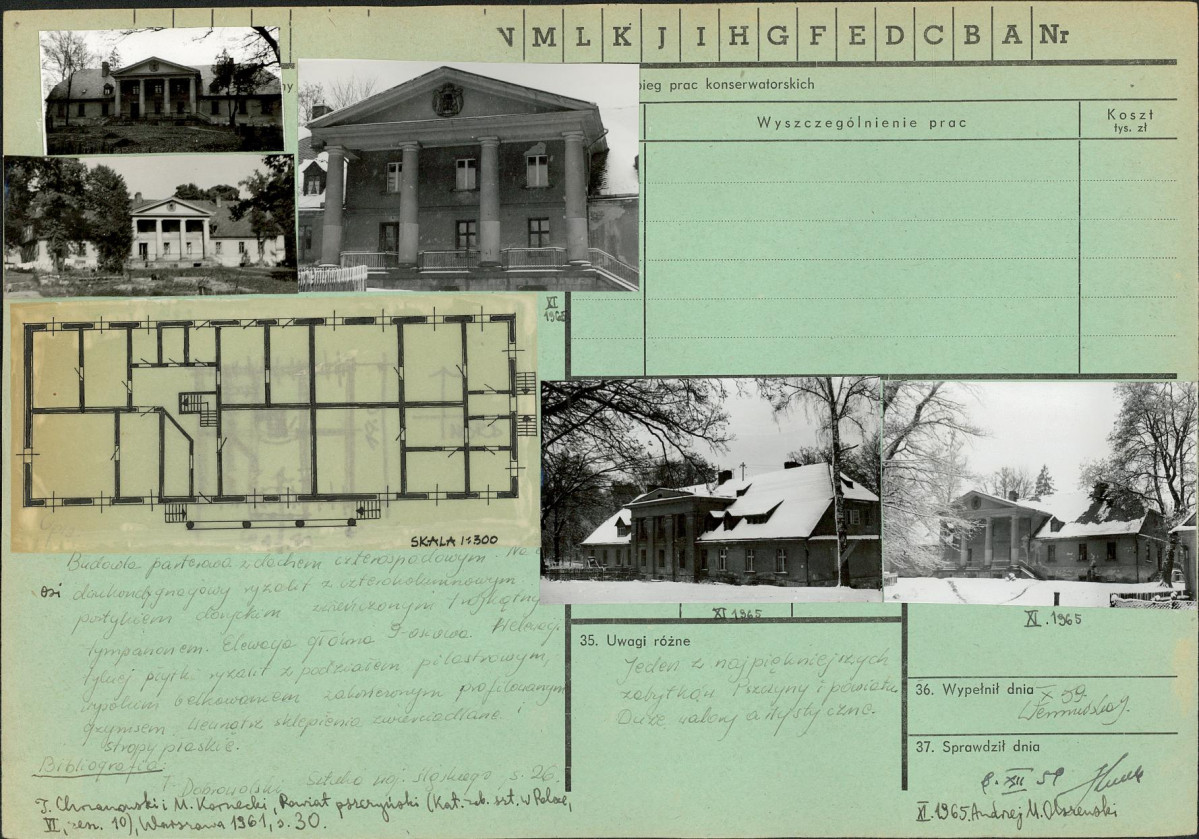 N M L K J I H G F E D C B A Nr
bieg prac konserwatorskich
Wyszczególnienie prac
Koszt
tys. zł
ny
XI
1965
SKALA 1:300
Budowla parterowa z dachem czterospadowym. Na
osi dwukondygnacyjny ryzalit z czterokolumnowym
portykiem doryckim, zwieńczonym trójkątnym
tympanonem. Elewacja główna 9-osiowa. W elewacji
tylnej płytki ryzalit z podziałem pilastrowym,
wysokim belkowaniem zakończonym profilowanym
gzymsem. Wewnątrz sklepienia zwierciadlane i
stropy płaskie.
Bibliografia:
T. Dobrowolski, Sztuka woj. śląskiego, s. 26.
T. Chrzanowski i M. Kornecki, Powiat pszczyński (Kat. zab. szt. w Polsce,
VI, zesz. 10), Warszawa 1961, s. 30.
XI 1965
XI. 1965
35. Uwagi różne
Jeden z najpiękniejszych
zabytków Pszczyny i powiatu
Duże walory artystyczne.
36. Wypełnił dnia
X 59.
37. Sprawdził dnia
8. XII 59
XI. 1965 Andrzej M. Olszewski